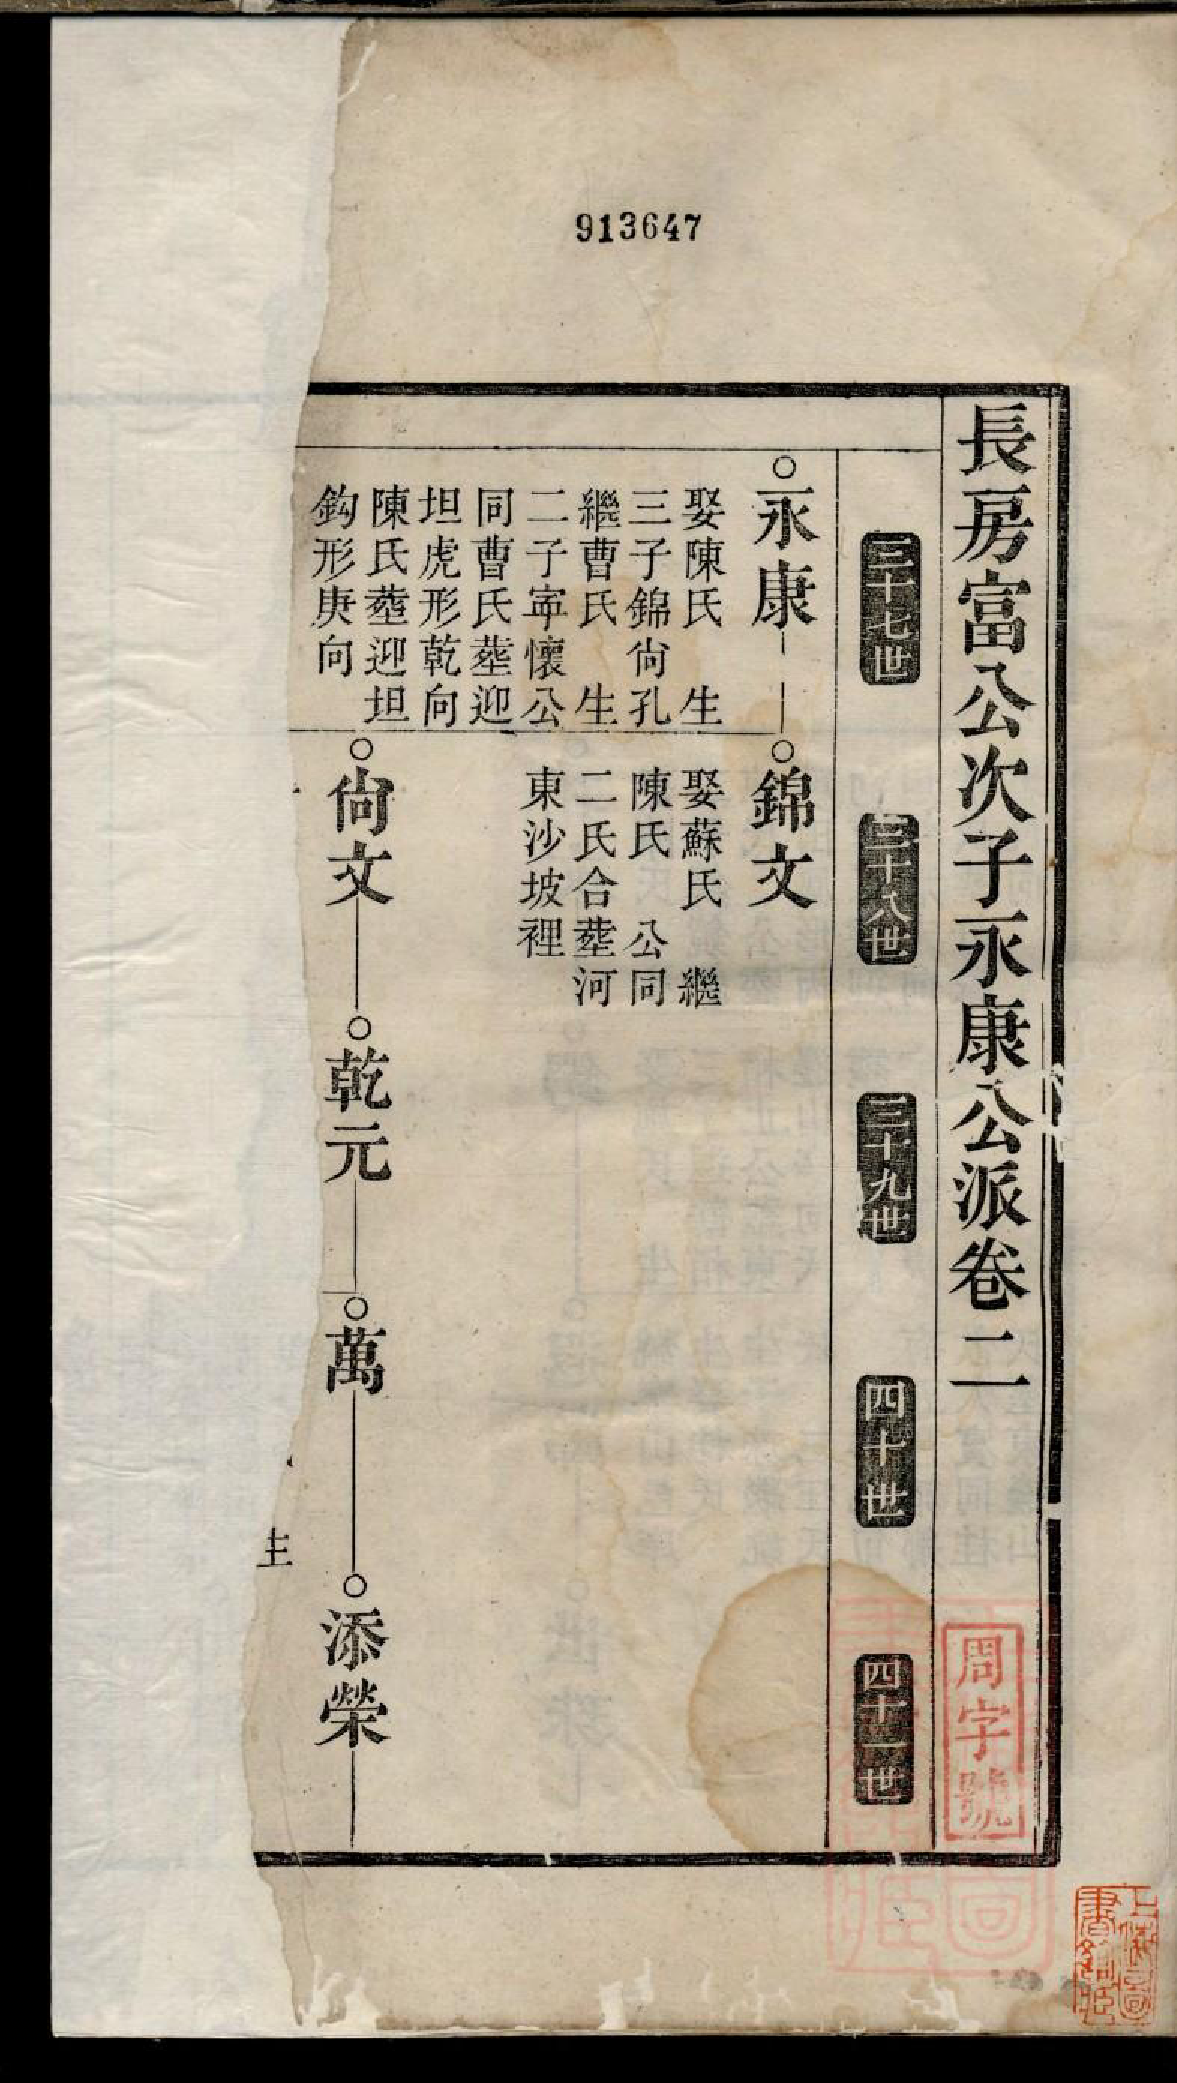 913647
長房富公次子永康公派卷二
周字號
三十七世
三十八世
三十九世
四十世
四十一世
○永康
娶陳氏 生
三子錦尙孔
繼曹氏 生
二子寧懷公
同曹氏塟迎
坦虎形乾向
陳氏塟迎坦
鈎形庚向
○錦文
娶蘇氏 繼
陳氏 公同
二氏合塟河
東沙坡裡
○尙文
○乾元
○萬
○添榮
生
上海圖書館藏